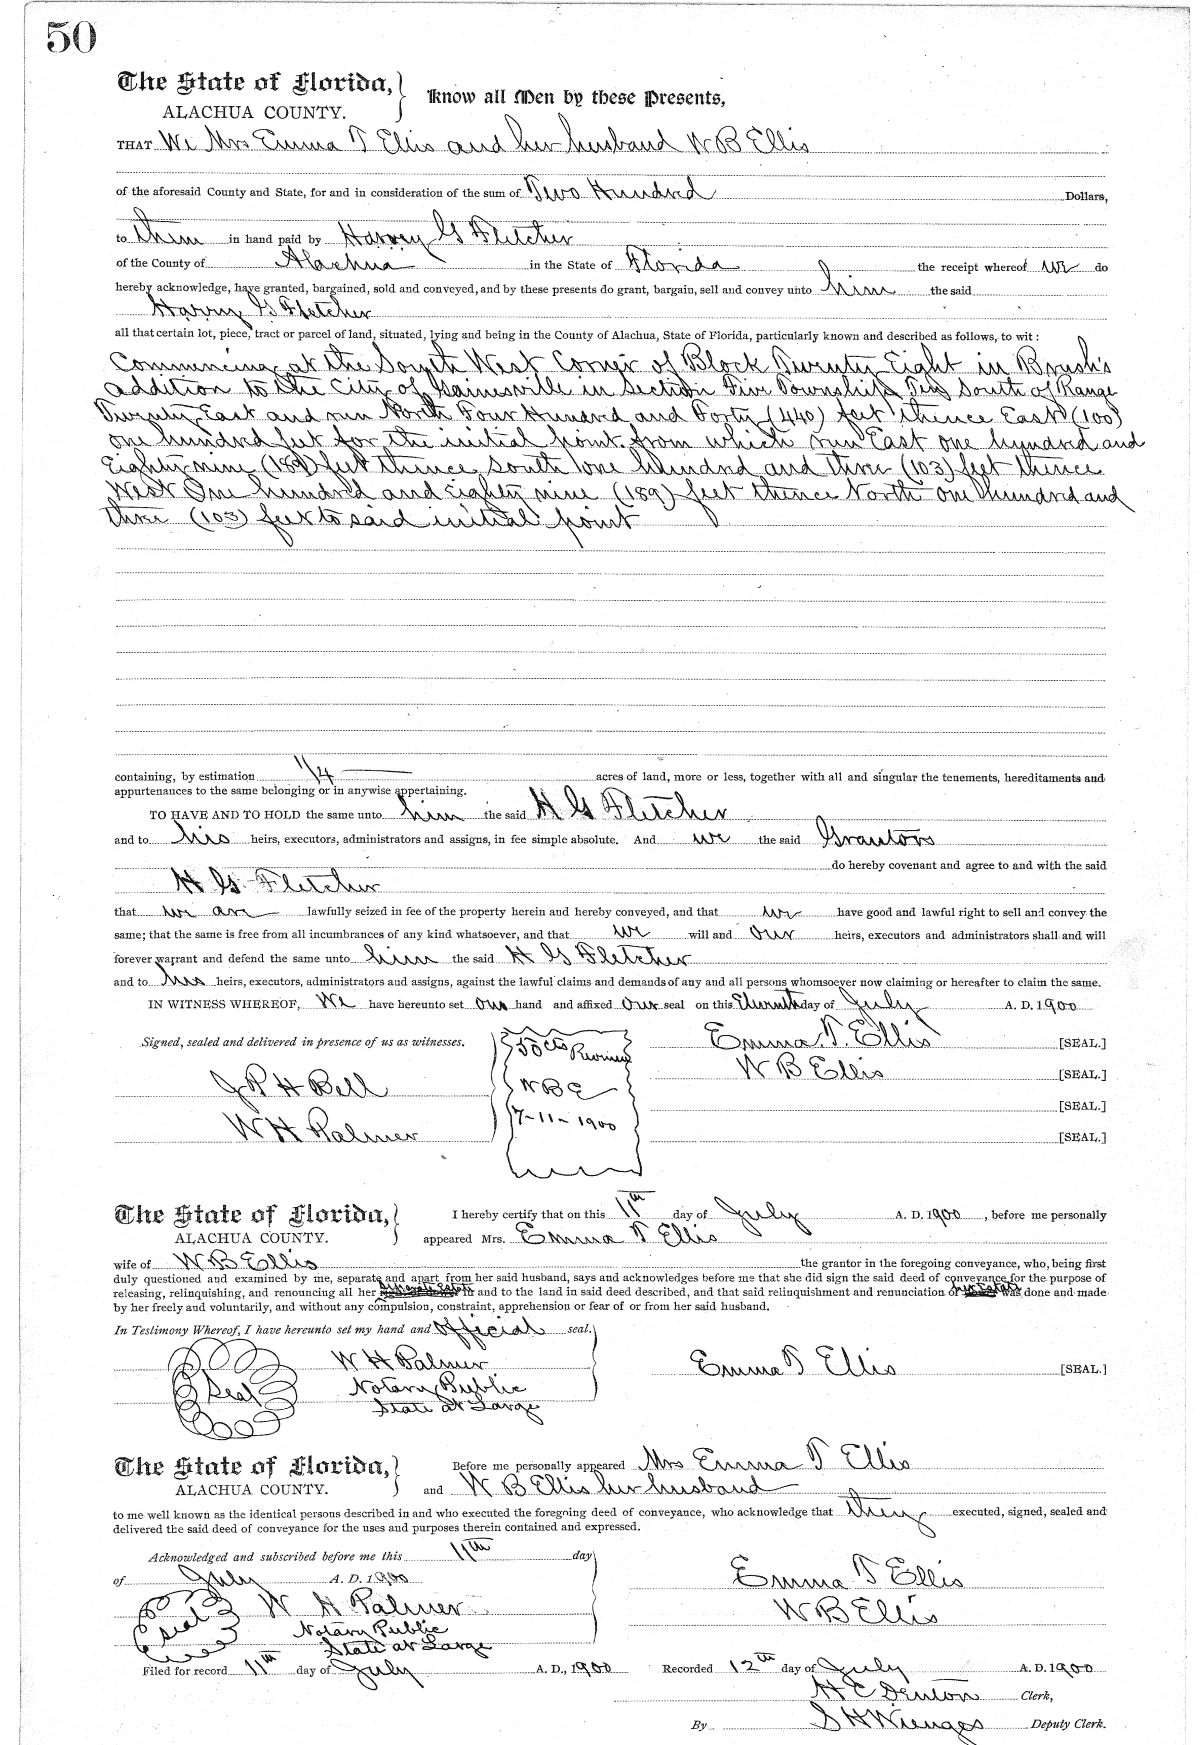 50
The State of Florida, Know all Men by these Presents,
ALACHUA COUNTY.
THAT We Mrs Emma T Ellis and her husband W B Ellis
of the aforesaid County and State, for and in consideration of the sum of Two Hundred Dollars,
to them in hand paid by Harvey G Fletcher
of the County of Alachua in the State of Florida the receipt whereof we do
hereby acknowledge, have granted, bargained, sold and conveyed, and by these presents do grant, bargain, sell and convey unto him the said
Harvey G Fletcher
all that certain lot, piece, tract or parcel of land, situated, lying and being in the County of Alachua, State of Florida, particularly known and described as follows, to wit:
Commencing at the South West Corner of Block Twenty Eight in Brush's
addition to the City of Gainesville in Section Five Township Ten South of Range
Twenty East and run North Four Hundred and Forty (440) feet thence East (100)
one hundred feet for the initial point from which run East one hundred and
Eighty nine (189) feet thence South one hundred and three (103) feet thence
West One hundred and eighty nine (189) feet thence North one hundred and
three (103) feet to said initial point
containing, by estimation 1/4 acres of land, more or less, together with all and singular the tenements, hereditaments and
appurtenances to the same belonging or in anywise appertaining.
TO HAVE AND TO HOLD the same unto him the said H G Fletcher
and to his heirs, executors, administrators and assigns, in fee simple absolute. And we the said Grantors
do hereby covenant and agree to and with the said
H G Fletcher
that we are lawfully seized in fee of the property herein and hereby conveyed, and that we have good and lawful right to sell and convey the
same; that the same is free from all incumbrances of any kind whatsoever, and that we will and our heirs, executors and administrators shall and will
forever warrant and defend the same unto him the said H G Fletcher
and to his heirs, executors, administrators and assigns, against the lawful claims and demands of any and all persons whomsoever now claiming or hereafter to claim the same.
IN WITNESS WHEREOF, We have hereunto set our hand and affixed our seal on this Eleventh day of July A. D. 1900
Signed, sealed and delivered in presence of us as witnesses.
J P H Bell
W H Palmer
50 cts Revenue
W B E
7-11-1900
Emma T. Ellis [SEAL.]
W B Ellis [SEAL.]
[SEAL.]
[SEAL.]
The State of Florida, I hereby certify that on this 11th day of July A. D. 1900, before me personally
ALACHUA COUNTY. appeared Mrs. Emma T Ellis
wife of W B Ellis the grantor in the foregoing conveyance, who, being first
duly questioned and examined by me, separate and apart from her said husband, says and acknowledges before me that she did sign the said deed of conveyance for the purpose of
releasing, relinquishing, and renouncing all her in and to the land in said deed described, and that said relinquishment and renunciation was done and made
by her freely and voluntarily, and without any compulsion, constraint, apprehension or fear of or from her said husband.
In Testimony Whereof, I have hereunto set my hand and official seal.
Seal
W H Palmer
Notary Public
State at Large
Emma T Ellis [SEAL.]
The State of Florida, Before me personally appeared Mrs Emma T Ellis
ALACHUA COUNTY. and W B Ellis her husband
to me well known as the identical persons described in and who executed the foregoing deed of conveyance, who acknowledge that they executed, signed, sealed and
delivered the said deed of conveyance for the uses and purposes therein contained and expressed.
Acknowledged and subscribed before me this 11th day
of July A. D. 1900
Seal
W H Palmer
Notary Public
State at Large
Emma T Ellis
W B Ellis
Filed for record 11th day of July A. D., 1900 Recorded 12th day of July A. D. 1900
H C Denton Clerk,
By S H Wienges Deputy Clerk.